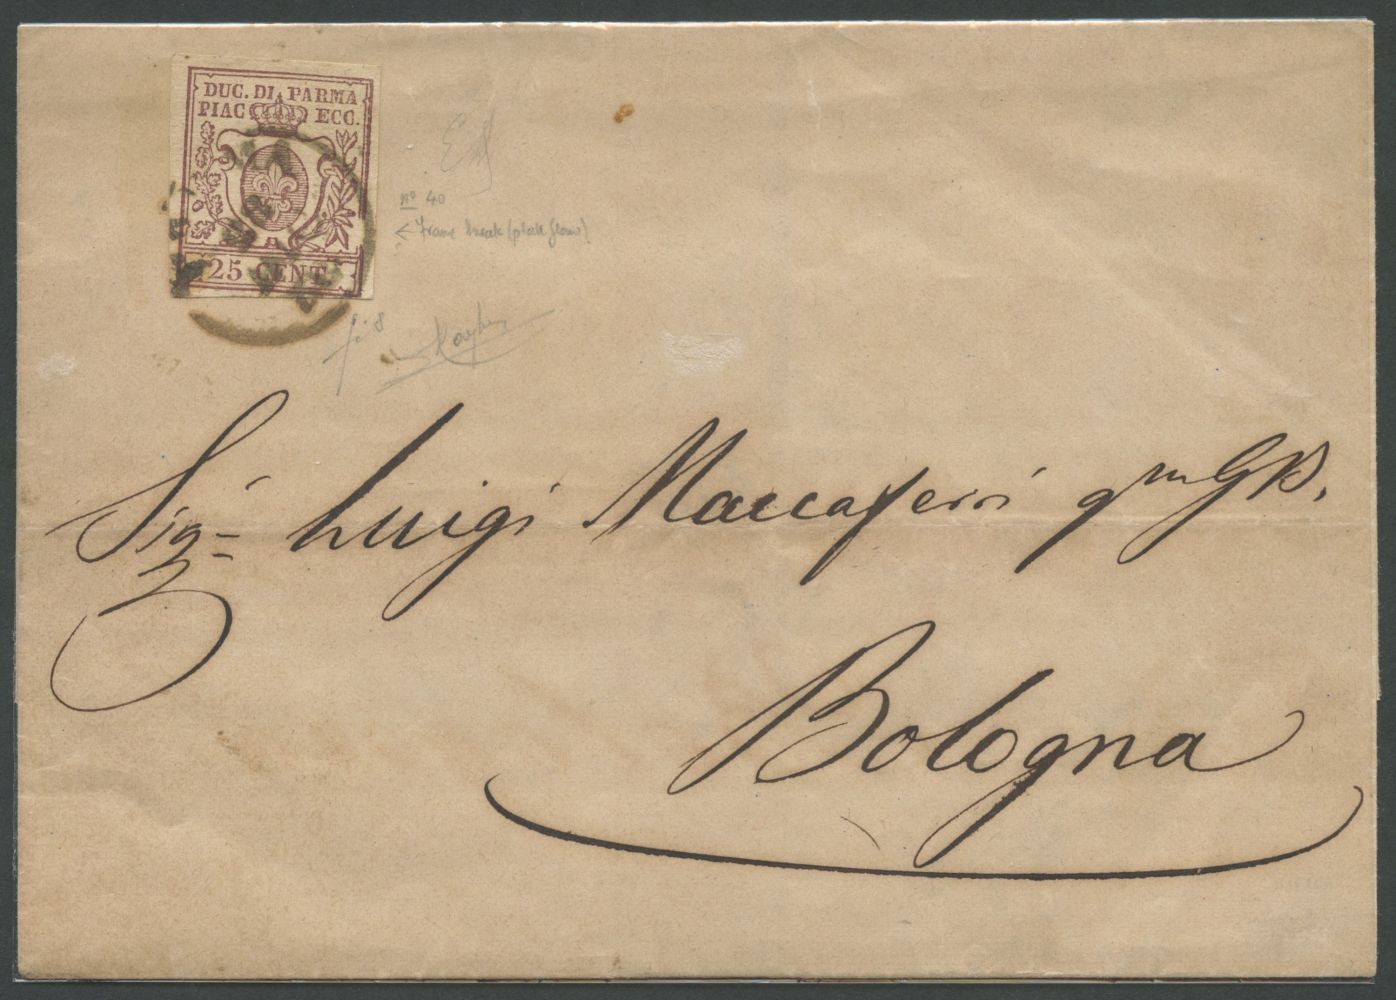 DUC. DI PARMA
PIAC ECC.
25 CENT
nº 40
← Frame break (plate flaw)
Sig= Luigi Maccaferri qm GB.
Bologna